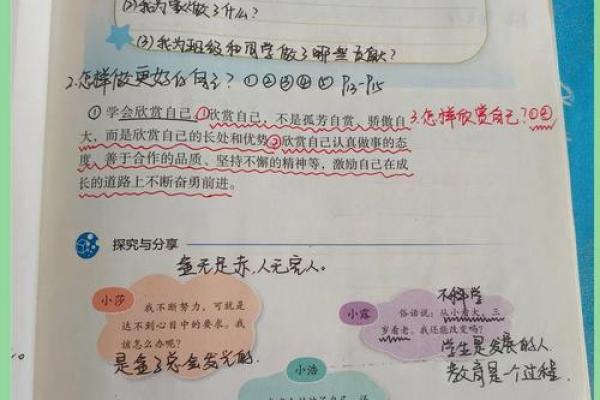 (2)我为家做了什么?
(3)我为班级和同学做了哪些贡献?
2.怎样做更好的自己?①②③④⑤ P13-P15
①学会欣赏自己。①欣赏自己,不是孤芳自赏、骄傲自
大,而是欣赏自己的长处和优势②欣赏自己认真做事的态
度、善于合作的品质、坚持不懈的精神等,激励自己在成
长的道路上不断奋勇前进。
3.怎样欣赏自己?①②
探究与分享
金无足赤,人无完人。
小莎
我不断努力,可就是
达不到心目中的要求。我
该怎么办呢?
是金子总会发光的.
不科学
小露
俗话说:从小看大,三
岁看老。我还能改变吗?
学生是发展的人
教育是一个过程.
小浩